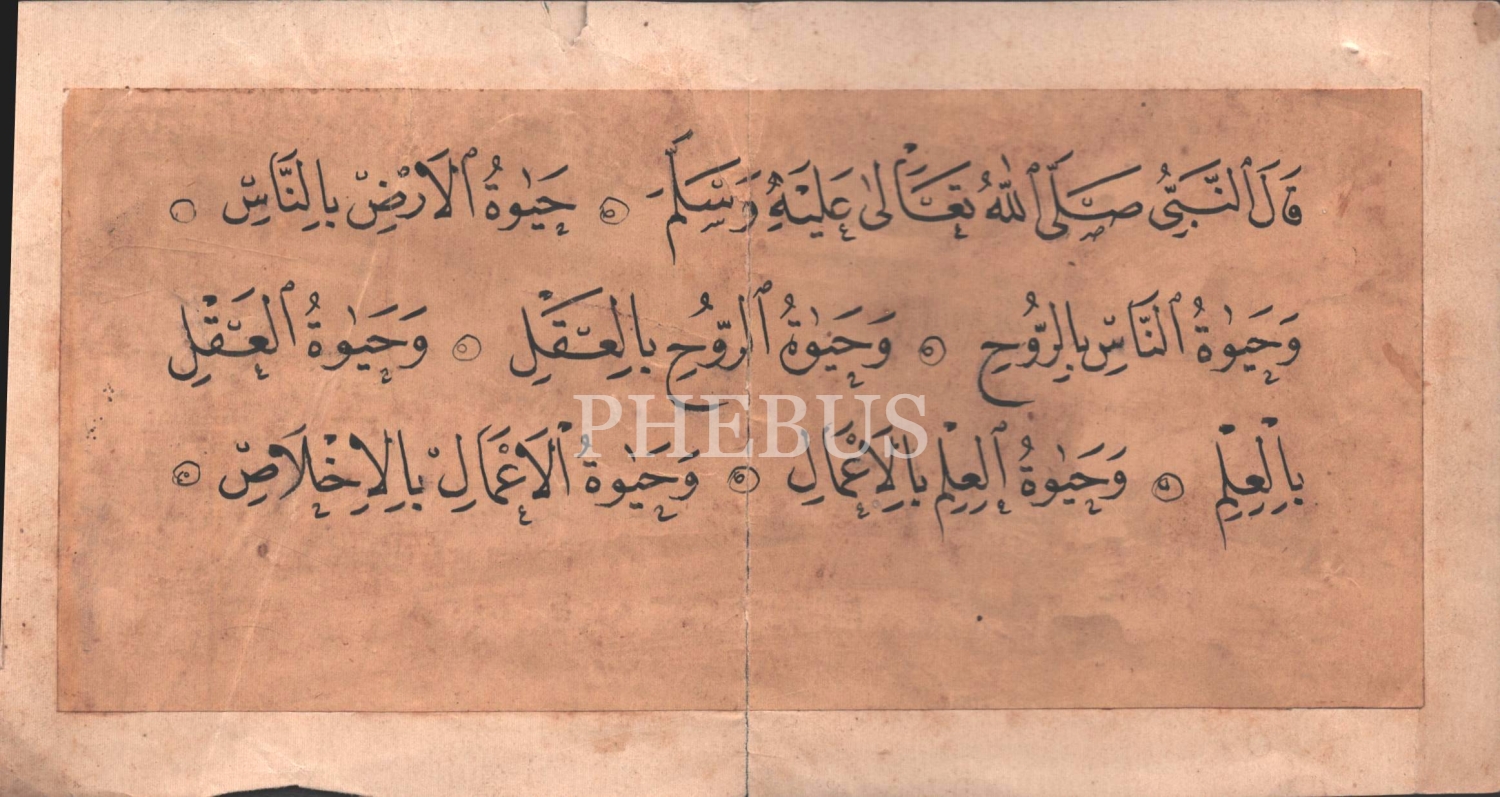 قَالَ ٱلنَّبِيُّ صَلَّى ٱللّٰهُ تَعَالٰى عَلَيْهِ وَسَلَّمَ ۞ حَيٰوةُ ٱلْاَرْضِ بِالنَّاسِ ۞
وَحَيٰوةُ ٱلنَّاسِ بِالرُّوحِ ۞ وَحَيٰوةُ ٱلرُّوحِ بِالْعَقْلِ ۞ وَحَيٰوةُ ٱلْعَقْلِ
PHEBUS
بِالْعِلْمِ ۞ وَحَيٰوةُ ٱلْعِلْمِ بِالْاَعْمَالِ ۞ وَحَيٰوةُ ٱلْاَعْمَالِ بِالْاِخْلَاصِ ۞